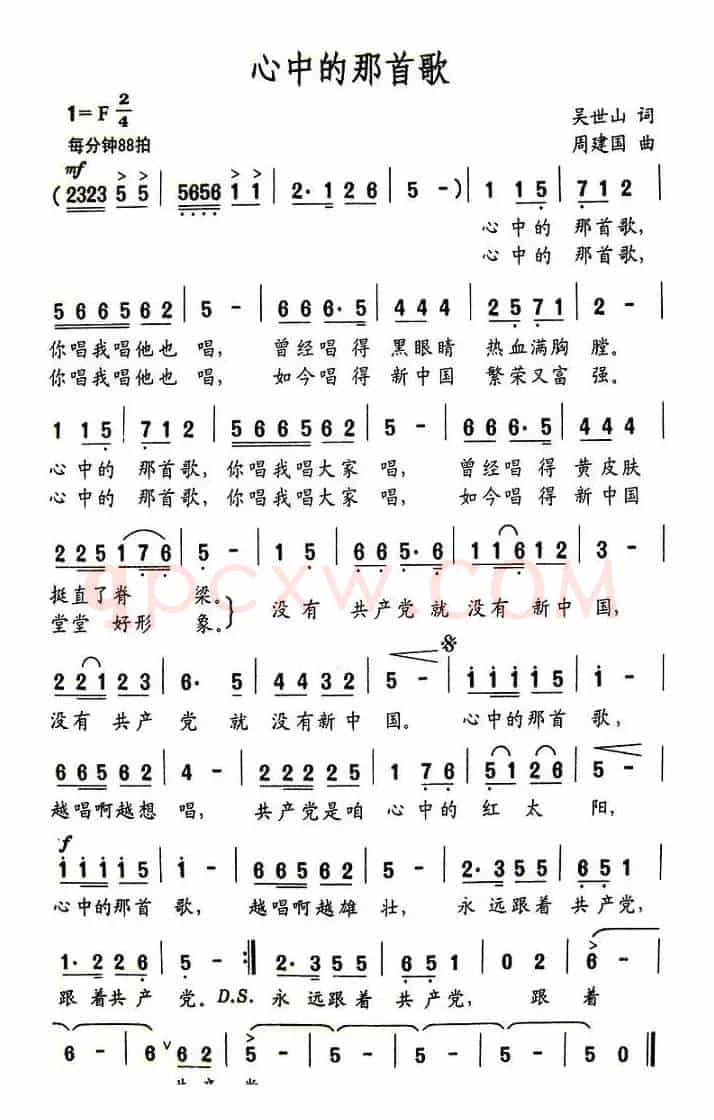 心中的那首歌
1=F 2/4
吴世山 词
每分钟88拍
周建国 曲
mf
( 2323 5 5 | 5656 1 1 | 2· 1 2 6 | 5 - ) | 1 1 5 | 7 1 2 |
心 中 的 那首歌,
心 中 的 那首歌,
5 6 6 5 6 6 2 | 5 - | 6 6 6· 5 | 4 4 4 | 2 5 7 1 | 2 - |
你唱我唱他也 唱, 曾经唱 得 黑眼睛 热血满胸 膛。
你唱我唱他也 唱, 如今唱 得 新中国 繁荣又富 强。
1 1 5 | 7 1 2 | 5 6 6 5 6 6 2 | 5 - | 6 6 6· 5 | 4 4 4 |
心 中的 那首歌, 你唱我唱大家 唱, 曾经唱 得 黄皮肤
心 中的 那首歌, 你唱我唱大家 唱, 如今唱 得 新中国
2 2 5 1 7 6 | 5 - | 1 5 | 6 6 5· 6 | 1 1 6 1 2 | 3 - |
挺直了脊 梁。
堂堂 好形 象。} 没有 共产党 就 没有 新中 国,
qpcxw.COM
2 2 1 2 3 | 6· 5 | 4 4 3 2 | 5 - | 1 1 1 1 5 | 1 - |
没有 共产 党 就 没有新中 国。 心中的那首 歌,
6 6 5 6 2 | 4 - | 2 2 2 2 5 | 1 7 6 | 5 1 2 6 | 5 - |
越唱啊越想 唱, 共产党是咱 心 中的 红 太 阳,
f
1 1 1 1 5 | 1 - | 6 6 5 6 2 | 5 - | 2· 3 5 5 | 6 5 1 |
心中的那首 歌, 越唱啊越雄 壮, 永 远跟着 共产党,
1· 2 2 6 | 5 - :‖ 2· 3 5 5 | 6 5 1 | 0 2 | 6 - |
跟 着共产 党. D.S. 永 远跟着 共产党, 跟 着
6 - | 6 ∨ 6 2 | 5 - | 5 - | 5 - | 5 - | 5 0 ‖